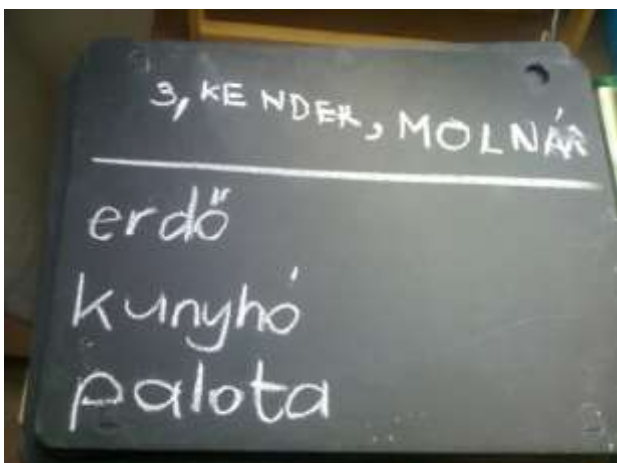 3, KENDER, MOLNÁR
erdő
kunyhó
palota